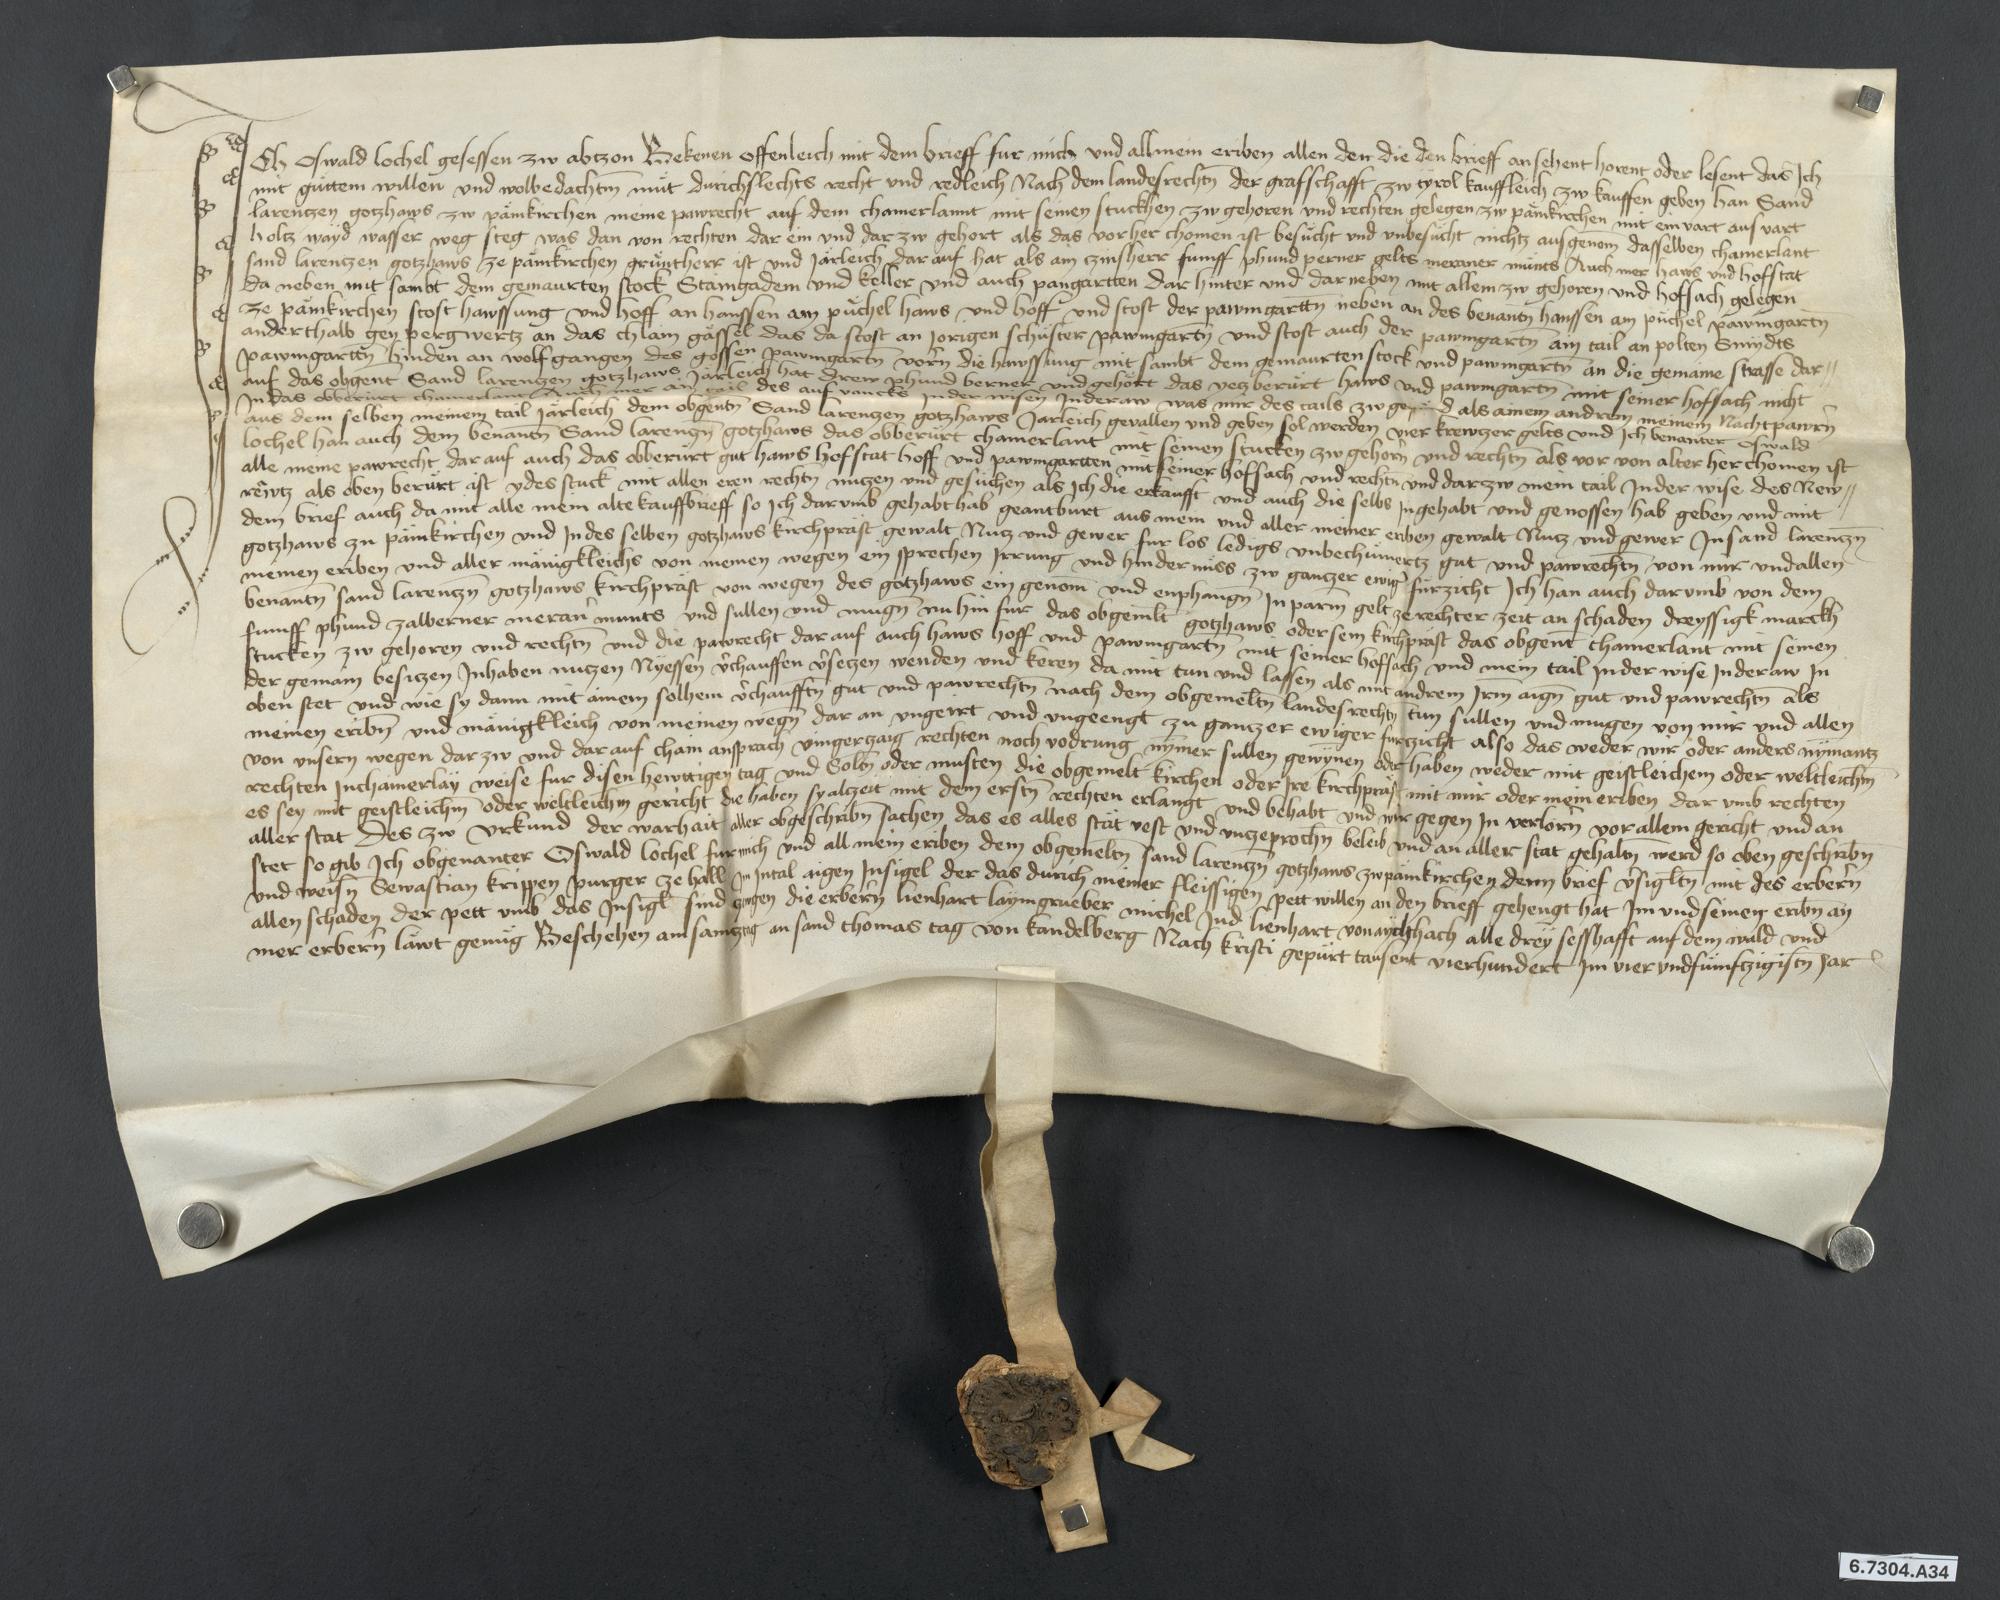 Ich Oswald lochel gesessen zw abtzon Bekenen offenleich mit dem brieff fur mich und all mein eriben allen den die den brieff ansehent horent oder lesent das Ich
mit guttem willen und wolbedachtm mut durichslechts recht und redleich Nach dem landesrechtn der grafschafft zw tyrol kauffleich zw kauffen geben han Sand
larentzen gotzhaws zw pämkirchen meine pawrecht auf dem chamerlannt mit seinen stuckhen zw gehoren und rechten gelegen zw pämkirchen mit ein vart aus vart
holtz wayd wasser weg steg was dan von rechten dar ein und dar zw gehort als das vor her chomen ist besucht und unbesucht nichtz ausgenom dasselben chamerlant
sand larentzen gotzhaws ze pämkirchen gruntherr ist und Järleich dar auf hat als am tzinsherr fumff phund perner gelts meraner munts Auch mer haws und hoffstat
da neben mit sambt dem gemaurten stock Stamgadem und keller und auch pangartten dar hinter und dar neben mit allem zw gehoren und hofsach gelegen
ze pämkirchen stost hawssung und hoff an hanssen am puchel haws und hoff und stost der pawmgarttn neben an des benantn hanssen am puchel pawmgartn
anderthalb gen perg wertz an das chlain gässel das da stost an Jorigen schuster pawmgartn und stost auch der pawmgartn am tail an polten Smydts
pawmgarttn hinden an wolfgangen des gossen pawmgartn vorn die hawssung mit sambt dem gemaurten stock und pawmgartn an die gemaine strasse dar
auf das obgent Sand larentzen gotzhaws Järleich hat drew phund berner und gehört das yetz berurt haws und pawmgartn mit seiner hofsach nicht
In das obberurt chamerlant Auch mer ain tail des aufvancks In der wisen In der aw was mir des tails zw gehord als ainem andrem meinem Nachtpawrn
aus dem selben meinem tail Järleich dem obgentn Sand larentzen gotzhaws Jarleich gevallen und geben sol werden vier krewtzer gelts und Ich benanter Oswald
lochel han auch dem benantn Sand larentzn gotzhaws das obberurt chamerlant mit seinen stucken zw gehorn und rechtn als vor von alter her chomen ist
alle meine pawrecht dar auf auch das obberurt gut haws hofstat hoff und pawmgartten mit seiner hoffsach und rechtn und dar zw mein tail In der wise des New
rewtz als oben berurt ist ydes stuck mit allen eren rechtn nutzen und gesuchen als Ich die erkaufft und auch die selbs Ingehabt und genossen hab geben und mit
dem brief auch da mit alle mein alte kauffbrieff so Ich dar umb gehabt hab geantburt aus mein und aller meiner eriben gewalt Nutz und gewer In sand larentzn
gotzhaws zu pämkirchen und In des selben gotzhaws kirchpräst gewalt Nutz und gewer fur los ledigs unbechumertz gut und pawrechtn von mir und allen
meinen eriben und aller mänigkleichs von meinen wegen ein sprechen Irrung und hindernuss zw gantzer ewiger furzicht Ich han auch dar umb von dem
benantn sand larentzn gotzhaws kirchpräst von wegen des gotzhaws ein genom und enphangn In parm gelt ze rechter zeit an schaden dreyssigk marckh
fumff phund zalberner meran munts und sullen und mugn nu hin fur das obgemelt gotzhaws oder sein kirchpräst das obgent chamerlant mit seinen
stucken zw gehoren und rechtn und die pawrecht dar auf auch haws hoff und pawmgartn mit seiner hoffsach und mein tail In der wise In der aw In
der gemain besitzen Inhaben nutzen Nyessen verchauffen versetzen wenden und keren da mit tun und lassen als mit andrem Irm aign gut und pawrechtn als
oben stet und wie sy dann mit ainem solhem verchaufftn gut und pawrechtn nach dem obgemeltn landesrechtn tun sullen und mugen von mir und allen
meinen eribn und mänigkleich von meinen wegn dar an ungeirt und ungeengt zu gantzer ewiger furtzicht also das weder wir oder anders nymantz
von unsern wegen dar zw und dar auf chain ansprach vingertzaig rechten noch vodrung nymer sullen gewynen oder haben weder mit geistleichem oder weltleichm
rechten In chainerlay weise fur disen hewttigen tag und Soltn oder musten die obgemelt kirchen oder Ire kirchpräst mit mir oder mein eriben dar umb rechten
es sey mit geistleichm oder weltleichm gericht die haben sy altzeit mit dem erstn rechten erlangt und behabt und wir gegen In verlorn vor allem gericht und an
aller stat Des zw urkund der warhait aller obgeschribn sachen das es alles stät vest und untzeprochn beleib und an aller stat gehaltn werd so oben geschribn
stet so gib Ich obgenanter Oswald lochel fur mich und all mein eriben dem obgemeltn sand larentzn gotzhaws zw pämkirchen denn brief versigltn mit des erbern
und weisn Sewastian krippen purger ze hall Im Intal aigen Insigel der das durich meiner fleissigen pett willen an den brieff gehengt hat Im und seinen eribn an
allen schaden der pett umb das Insigl sind zewgen die erbern lienhart laymgrueber michel Jud lienhart von aychach alle drey sesshafft auf dem wald und
mer erbern läwt genug Beschehen am samtztag an sand thomas tag von kandelberg Nach kristi gepurt tausent vierhundert Im vier und fumftzigistn Jar
6.7304.A34